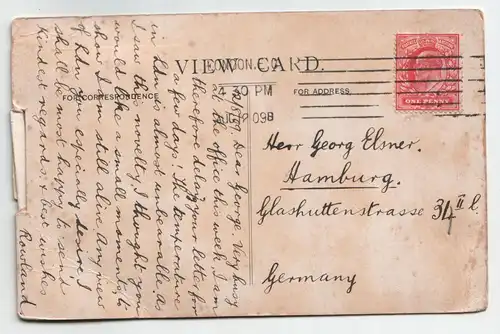 VIEW CARD.
FOR CORRESPONDENCE
FOR ADDRESS
LONDON. E.C.
PM
09B
ONE PENNY
Dear George. Very busy
at the office this week & am
therefore delaying your letter for
a few days. The temperature
in Ldn is almost unbearable as
I saw this novelty I thought you
would like a small momento &
show I am still alive. Any view
of Ldn you especially desire I
shall be most happy to send
Kindest regards & best wishes
Rowland
Herr Georg Elsner.
Hamburg.
Glashuttenstrasse 34 II l.
Germany